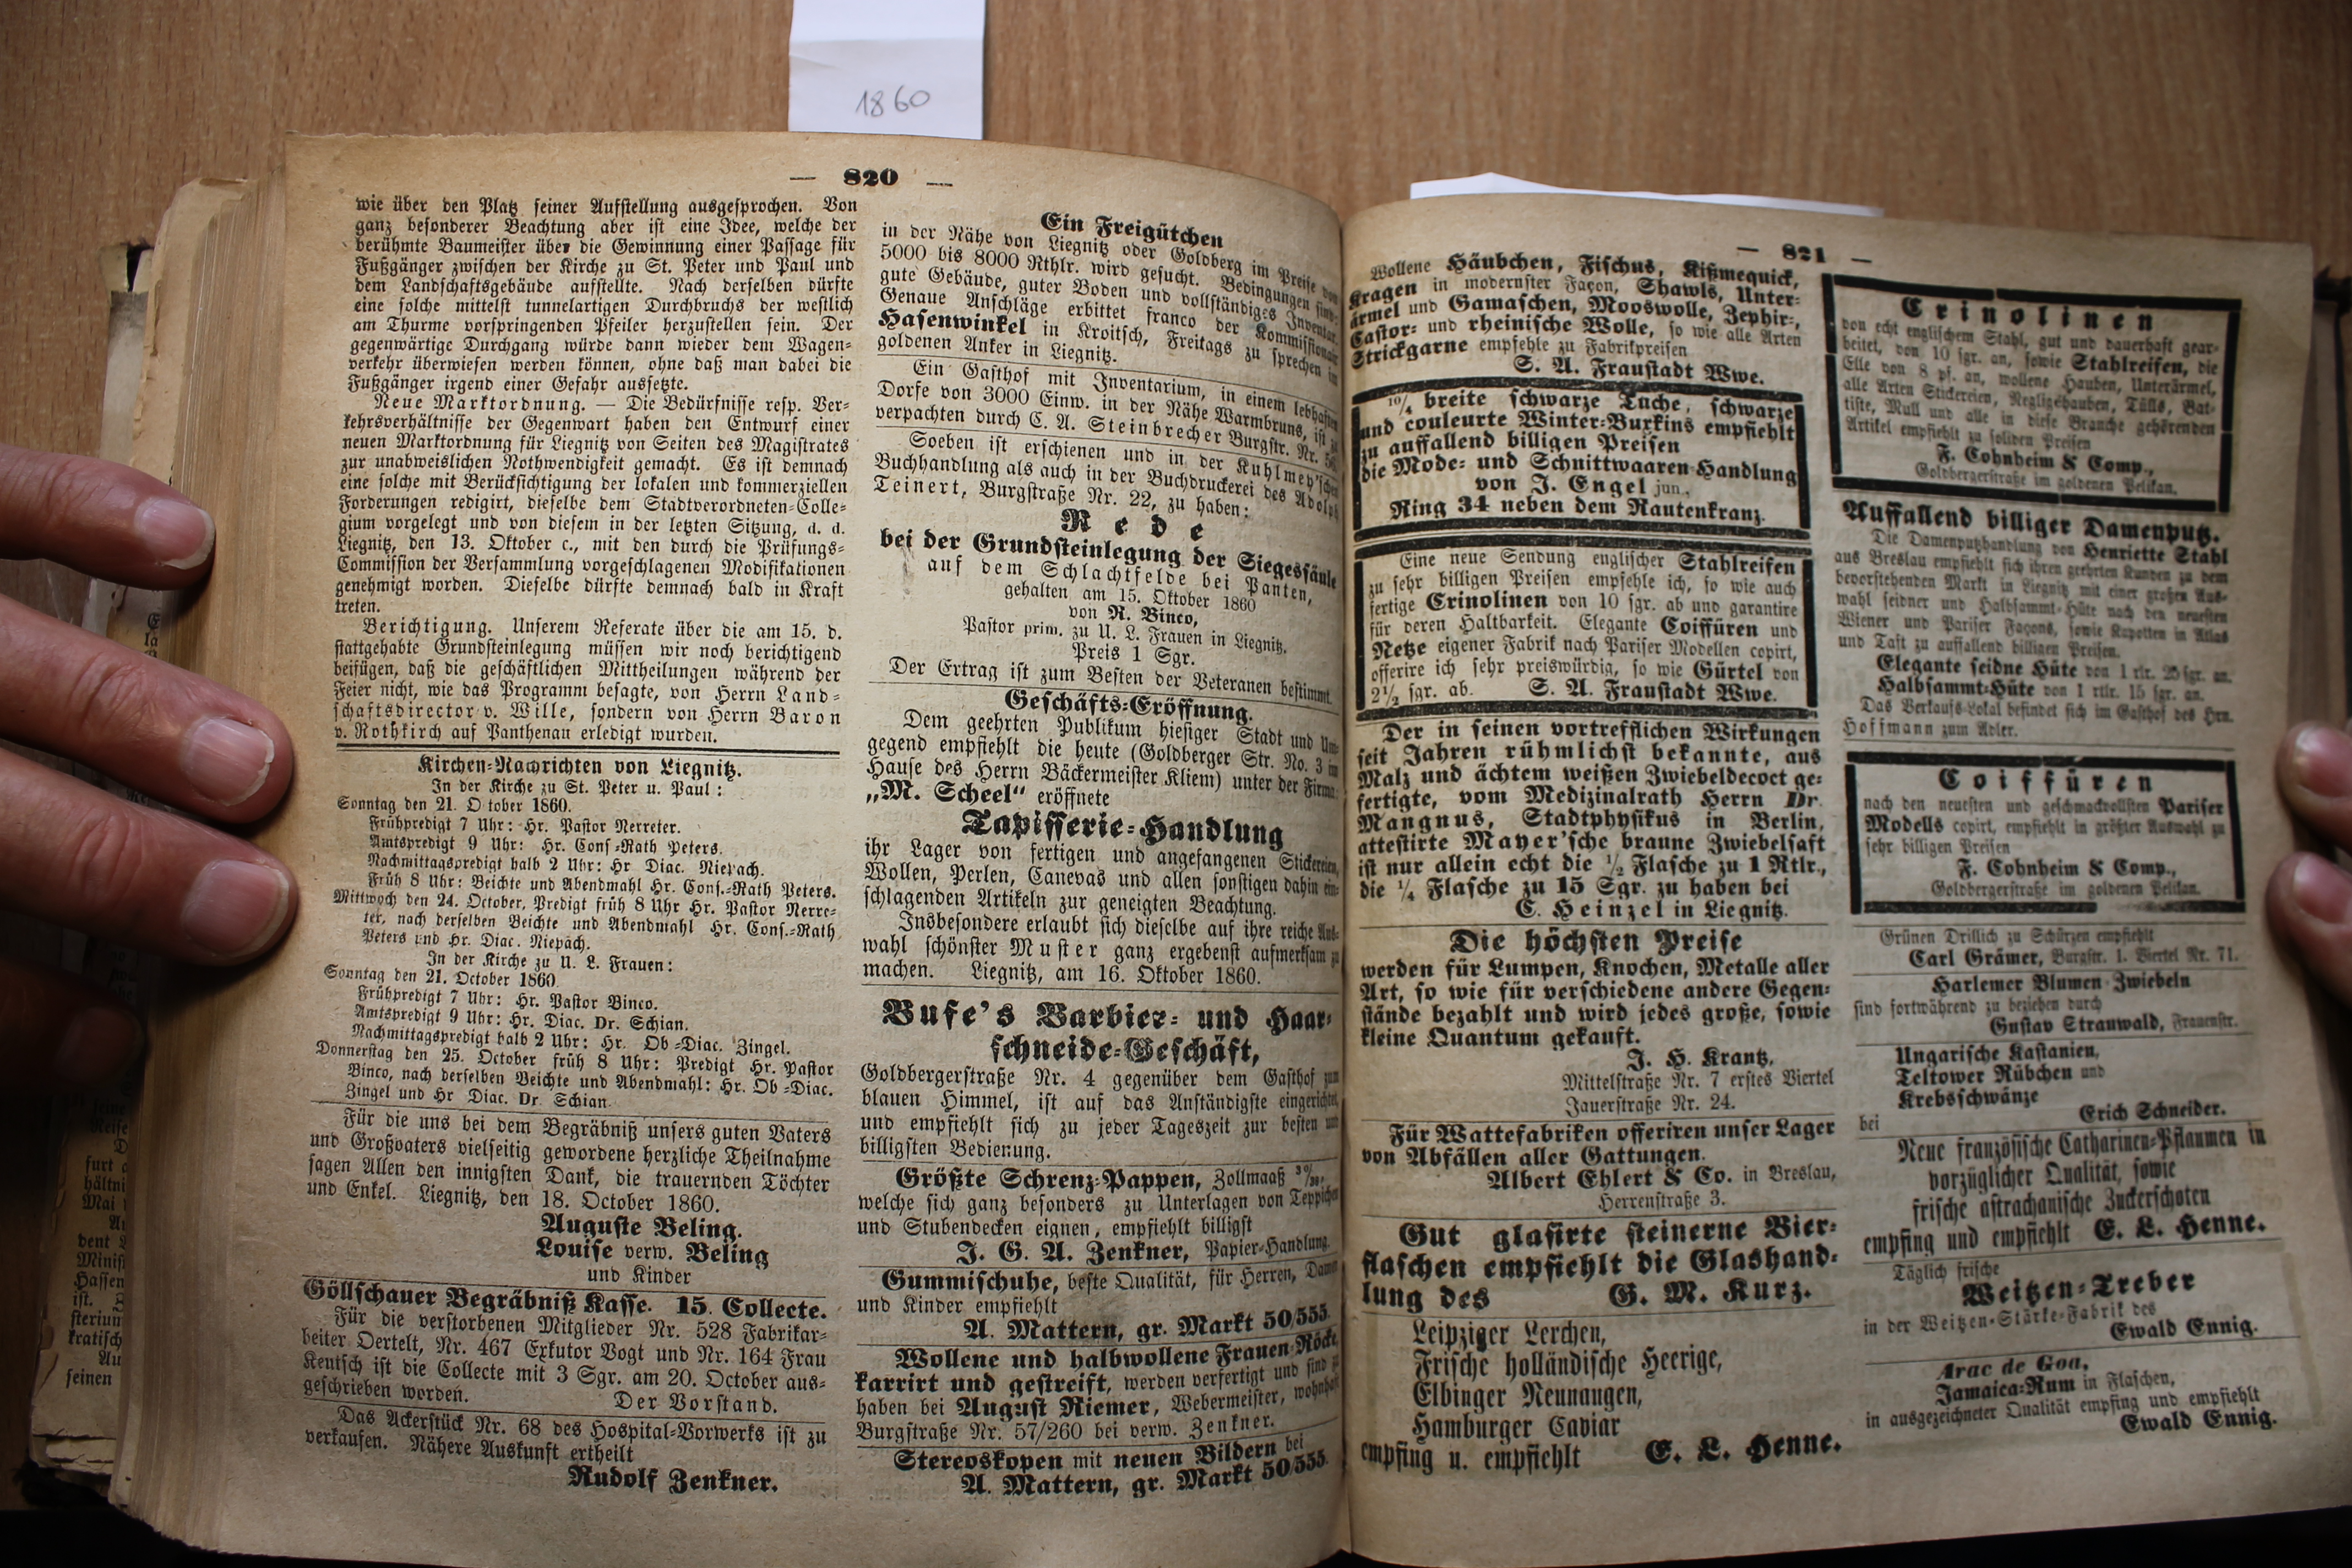 1860
— 820 —
wie über den Platz seiner Aufstellung ausgesprochen. Von
ganz besonderer Beachtung aber ist eine Idee, welche der
berühmte Baumeister über die Gewinnung einer Passage für
Fußgänger zwischen der Kirche zu St. Peter und Paul und
dem Landschaftsgebäude aufstellte. Nach derselben dürfte
eine solche mittelst tunnelartigen Durchbruchs der westlich
am Thurme vorspringenden Pfeiler herzustellen sein. Der
gegenwärtige Durchgang würde dann wieder dem Wagen-
verkehr überwiesen werden können, ohne daß man dabei die
Fußgänger irgend einer Gefahr aussetzte.
Neue Marktordnung. — Die Bedürfnisse resp. Ver-
kehrsverhältnisse der Gegenwart haben den Entwurf einer
neuen Marktordnung für Liegnitz von Seiten des Magistrates
zur unabweislichen Nothwendigkeit gemacht. Es ist demnach
eine solche mit Berücksichtigung der lokalen und kommerziellen
Forderungen redigirt, dieselbe dem Stadtverordneten-Colle-
gium vorgelegt und von diesem in der letzten Sitzung, d. d.
Liegnitz, den 13. Oktober c., mit den durch die Prüfungs-
Commission der Versammlung vorgeschlagenen Modifikationen
genehmigt worden. Dieselbe dürfte demnach bald in Kraft
treten.
Berichtigung. Unserem Referate über die am 15. d.
stattgehabte Grundsteinlegung müssen wir noch berichtigend
beifügen, daß die geschäftlichen Mittheilungen während der
Feier nicht, wie das Programm besagte, von Herrn Land-
schaftsdirector v. Wille, sondern von Herrn Baron
v. Rothkirch auf Panthenau erledigt wurden.
Kirchen-Nachrichten von Liegnitz.
In der Kirche zu St. Peter u. Paul:
Sonntag den 21. O tober 1860.
Frühpredigt 7 Uhr: Hr. Pastor Nerreter.
Amtspredigt 9 Uhr: Hr. Cons.-Rath Peters.
Nachmittagspredigt halb 2 Uhr: Hr Diac. Niepach.
Früh 8 Uhr: Beichte und Abendmahl Hr. Cons.-Rath Peters.
Mittwoch den 24. October, Predigt früh 8 Uhr Hr. Pastor Nerre-
ter, nach derselben Beichte und Abendmahl Hr. Cons.-Rath
Peters und Hr. Diac. Niepäch.
In der Kirche zu U. L. Frauen:
Sonntag den 21. October 1860.
Frühpredigt 7 Uhr: Hr. Pastor Binco.
Amtspredigt 9 Uhr: Hr. Diac. Dr. Schian.
Nachmittagspredigt halb 2 Uhr: Hr. Ob.-Diac. Zingel.
Donnerstag den 25. October früh 8 Uhr: Predigt Hr. Pastor
Binco, nach derselben Beichte und Abendmahl: Hr. Ob.-Diac.
Zingel und Hr Diac. Dr. Schian.
Für die uns bei dem Begräbniß unsers guten Vaters
und Großvaters vielseitig gewordene herzliche Theilnahme
sagen Allen den innigsten Dank, die trauernden Töchter
und Enkel. Liegnitz, den 18. October 1860.
Auguste Beling.
Louise verw. Beling
und Kinder
Göllschauer Begräbniß Kasse. 15. Collecte.
Für die verstorbenen Mitglieder Nr. 528 Fabrikar-
beiter Oertelt, Nr. 467 Exkutor Vogt und Nr. 164 Frau
Keutsch ist die Collecte mit 3 Sgr. am 20. October aus-
geschrieben worden. Der Vorstand.
Das Ackerstück Nr. 68 des Hospital-Vorwerks ist zu
verkaufen. Nähere Auskunft ertheilt
Rudolf Zenkner.
Ein Freigütchen
in der Nähe von Liegnitz oder Goldberg im Preise von
5000 bis 8000 Rthlr. wird gesucht. Bedingungen sind:
gute Gebäude, guter Boden und vollständiges Inventar.
Genaue Anschläge erbittet franco der Kommissionair
Hasenwinkel in Kroitsch, Freitags zu sprechen im
goldenen Anker in Liegnitz.
Ein Gasthof mit Inventarium, in einem lebhaften
Dorfe von 3000 Einw. in der Nähe Warmbruns, ist zu
verpachten durch C. A. Steinbrecher Burgstr. Nr.
Soeben ist erschienen und in der Kuhlmey'schen
Buchhandlung als auch in der Buchdruckerei des Adolph
Teinert, Burgstraße Nr. 22, zu haben:
Rede
bei der Grundsteinlegung der Siegessäule
auf dem Schlachtfelde bei Panten,
gehalten am 15. Oktober 1860
von R. Binco,
Pastor prim. zu U. L. Frauen in Liegnitz.
Preis 1 Sgr.
Der Ertrag ist zum Besten der Veteranen bestimmt.
Geschäfts-Eröffnung.
Dem geehrten Publikum hiesiger Stadt und Um-
gegend empfiehlt die heute (Goldberger Str. No. 3 im
Hause des Herrn Bäckermeister Kliem) unter der Firma:
„M. Scheel“ eröffnete
Tapisserie-Handlung
ihr Lager von fertigen und angefangenen Stickereien,
Wollen, Perlen, Canevas und allen sonstigen dahin ein-
schlagenden Artikeln zur geneigten Beachtung.
Insbesondere erlaubt sich dieselbe auf ihre reiche Aus-
wahl schönster Muster ganz ergebenst aufmerksam zu
machen. Liegnitz, am 16. Oktober 1860.
Bufe's Barbier- und Haar-
schneide-Geschäft,
Goldbergerstraße Nr. 4 gegenüber dem Gasthof zum
blauen Himmel, ist auf das Anständigste eingerichtet
und empfiehlt sich zu jeder Tageszeit zur besten und
billigsten Bedienung.
Größte Schrenz-Pappen, Zollmaaß
welche sich ganz besonders zu Unterlagen von Teppichen
und Stubendecken eignen, empfiehlt billigst
J. G. A. Zenkner, Papier-Handlung.
Gummischuhe, beste Qualität, für Herren, Damen
und Kinder empfiehlt
A. Mattern, gr. Markt 50/555.
Wollene und halbwollene Frauen-Röcke,
karrirt und gestreift, werden verfertigt und sind zu
haben bei August Riemer, Webermeister, wohnhaft
Burgstraße Nr. 57/260 bei verw. Zenkner.
Stereoskopen mit neuen Bildern bei
A. Mattern, gr. Markt 50/555.
— 821 —
Wollene Häubchen, Fischus, Kißmequick,
Kragen in modernster Façon, Shawls, Unter-
ärmel und Gamaschen, Mooswolle, Zephir-,
Castor- und rheinische Wolle, so wie alle Arten
Strickgarne empfehle zu Fabrikpreisen
S. A. Fraustadt Wwe.
10/4 breite schwarze Tuche, schwarze
und couleurte Winter-Buxkins empfiehlt
zu auffallend billigen Preisen
die Mode- und Schnittwaaren-Handlung
von J. Engel jun.,
Ring 34 neben dem Rautenkranz.
Eine neue Sendung englischer Stahlreifen
zu sehr billigen Preisen empfehle ich, so wie auch
fertige Crinolinen von 10 sgr. ab und garantire
für deren Haltbarkeit. Elegante Coiffüren und
Netze eigener Fabrik nach Pariser Modellen copirt,
offerire ich sehr preiswürdig, so wie Gürtel von
2½ sgr. ab. S. A. Fraustadt Wwe.
Der in seinen vortrefflichen Wirkungen
seit Jahren rühmlichst bekannte, aus
Malz und ächtem weißen Zwiebeldecoct ge-
fertigte, vom Medizinalrath Herrn Dr.
Mangnus, Stadtphysikus in Berlin,
attestirte Mayer'sche braune Zwiebelsaft
ist nur allein echt die ½ Flasche zu 1 Rtlr.,
die ¼ Flasche zu 15 Sgr. zu haben bei
C. Heinzel in Liegnitz.
Die höchsten Preise
werden für Lumpen, Knochen, Metalle aller
Art, so wie für verschiedene andere Gegen-
stände bezahlt und wird jedes große, sowie
kleine Quantum gekauft.
J. H. Krantz.
Mittelstraße Nr. 7 erstes Viertel
Jauerstraße Nr. 24.
Für Wattefabriken offeriren unser Lager
von Abfällen aller Gattungen.
Albert Ehlert & Co. in Breslau,
Herrenstraße 3.
Gut glasirte steinerne Bier-
flaschen empfiehlt die Glashand-
lung des G. M. Kurz.
Leipziger Lerchen,
Frische holländische Heerige,
Elbinger Neunaugen,
Hamburger Caviar
empfing u. empfiehlt E. L. Henne.
Crinolinen
von echt englischem Stahl, gut und dauerhaft gear-
beitet, von 10 sgr. an, sowie Stahlreifen, die
Elle von 8 pf. an, wollene Hauben, Unterärmel,
alle Arten Stickereien, Negligéhauben, Tülls, Bat-
tiste, Mull und alle in diese Branche gehörenden
Artikel empfiehlt zu soliden Preisen
F. Cohnheim & Comp.,
Goldbergerstraße im goldenen Pelikan.
Auffallend billiger Damenputz.
Die Damenputzhandlung von Henriette Stahl
aus Breslau empfiehlt sich ihren geehrten Kunden zu dem
bevorstehenden Markt in Liegnitz mit einer großen Aus-
wahl seidner und Halbsammt-Hüte nach den neuesten
Wiener und Pariser Façons, sowie Kapotten in Atlas
und Taft zu auffallend billigen Preisen.
Elegante seidne Hüte von 1 rlr. 25 sgr. an.
Halbsammt-Hüte von 1 rtlr. 15 sgr. an.
Das Verkaufs-Lokal befindet sich im Gasthof des Hrn.
Hoffmann zum Adler.
Coiffüren
nach den neuesten und geschmackvollsten Pariser
Modells copirt, empfiehlt in größter Auswahl zu
sehr billigen Preisen
F. Cohnheim & Comp.,
Goldbergerstraße im goldenen Pelikan.
Grünen Drillich zu Schürzen empfiehlt
Carl Grämer, Burgstr. 1. Viertel Nr. 71.
Harlemer Blumen-Zwiebeln
sind fortwährend zu beziehen durch
Gustav Strauwald, Frauenstr.
Ungarische Kastanien,
Teltower Rübchen und
Krebsschwänze
bei Erich Schneider.
Neue französische Catharinen-Pflaumen in
vorzüglicher Qualität, sowie
frische astrachanische Zuckerschoten
empfing und empfiehlt E. L. Henne.
Täglich frische
Weitzen-Treber
in der Weitzen-Stärke-Fabrik des
Ewald Ennig.
Arac de Goa,
Jamaica-Rum in Flaschen,
in ausgezeichneter Qualität empfing und empfiehlt
Ewald Ennig.